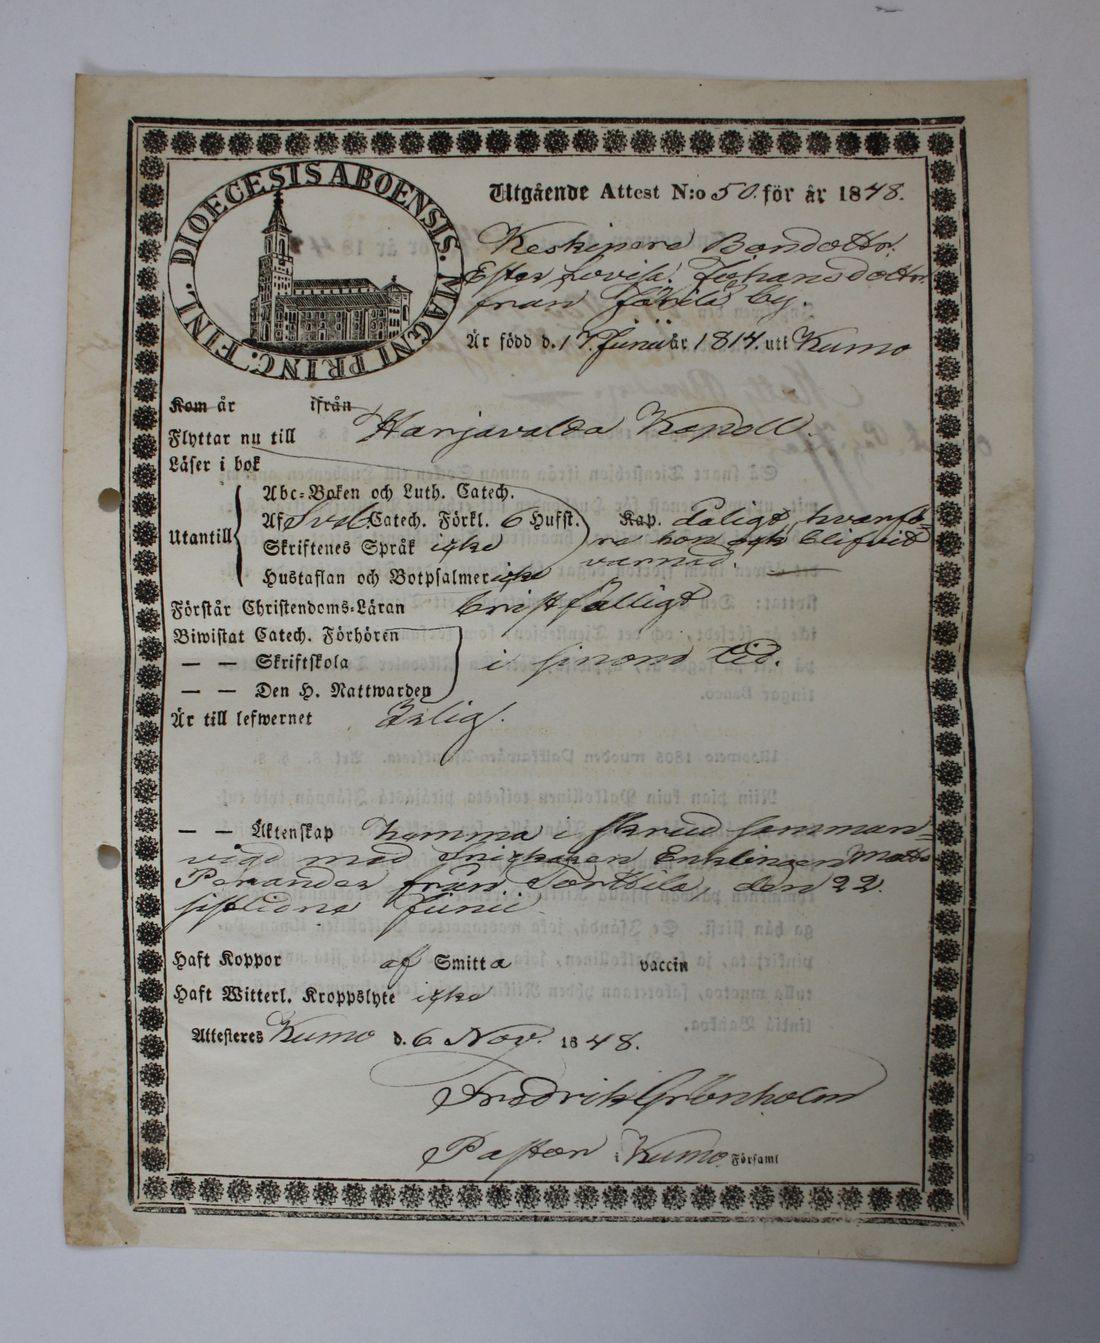 DIOECESIS ABOENSIS. MAGNI PRINC. FINL.
Utgående Attest N:o 50. för år 1848.
Keskinore Bondedottr.
Ester Lovisa Johansdotter
från by.
Är född d. 17 Junii år 1814. uti Kumo
Kom år ifrån
Flyttar nu till Harjavalda Kapell.
Läser i bok
Abc-Boken och Luth. Catech.
Utantill Af Sveb. Catech. Förkl. 6 Hufst. Kap. dåligt, hvarfö-
Skriftenes Språk icke re hon ock blifvit
varnad.
Hustaflan och Botpsalmer icke
Förstår Christendoms-Läran bristfälligt
Biwistat Catech. Förhören
— — Skriftskola i sinom tid.
— — Den H. Nattwarden
Är till lefwernet ärlig.
— — Äktenskap hemma i skrud samman-
vigd med Enklingen Matts
från Torttila, den 22.
sistlidne Junii.
Haft Koppor af Smitta vaccin
Haft Witterl. Kroppslyte icke
Attesteres Kumo d. 6 Nov. 1848.
Fredrik Grönholm
Pastor i Kumo Församl